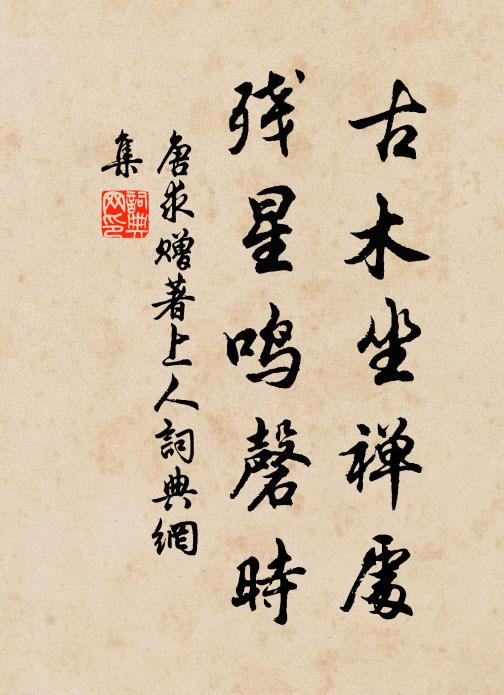 古木坐禅處
残星鸣磬時
唐求赠著上人詞典網
集
詞典
网印